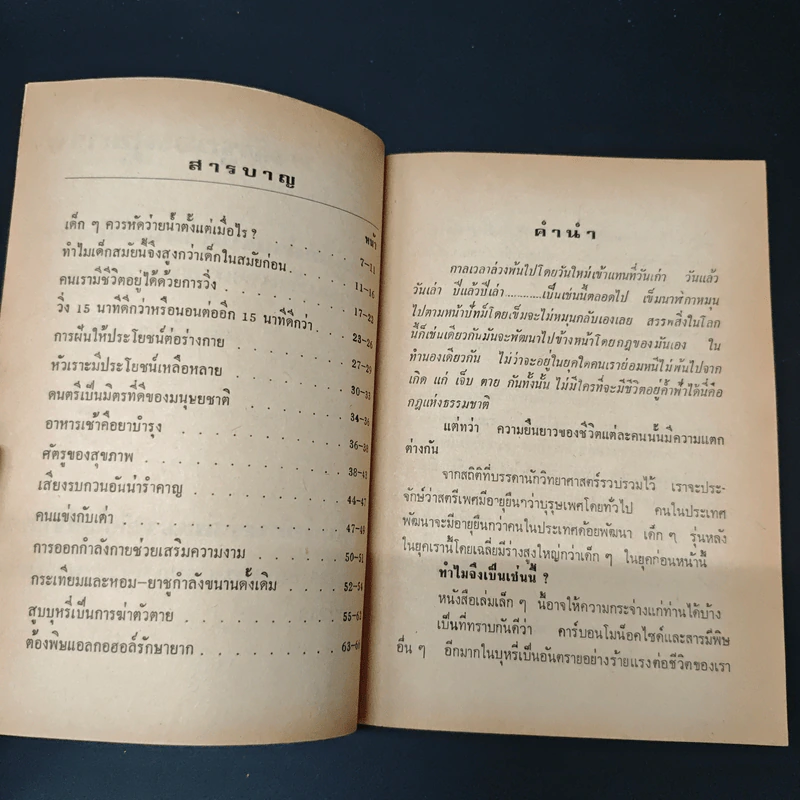 สารบาญ
หน้า
เด็ก ๆ ควรหัดว่ายน้ำตั้งแต่เมื่อไร ? . . . . . 7-11
ทำไมเด็กสมัยนี้จึงสูงกว่าเด็กในสมัยก่อน . . . . 11-16
คนเรามีชีวิตอยู่ได้ด้วยการวิ่ง . . . . . 17-23
วิ่ง 15 นาทีดีกว่าหรือนอนต่ออีก 15 นาทีดีกว่า . . 23-26
การฝันให้ประโยชน์ต่อร่างกาย . . . . . 27-29
หัวเราะมีประโยชน์เหลือหลาย . . . . . 30-33
ดนตรีเป็นมิตรที่ดีของมนุษยชาติ . . . . . 34-36
อาหารเช้าคือยาบำรุง . . . . . 36-38
ศัตรูของสุขภาพ . . . . . 38-43
เสียงรบกวนอันน่ารำคาญ . . . . . 44-47
คนแข่งกับเต่า . . . . . 47-49
การออกกำลังกายช่วยเสริมความงาม . . . . . 50-51
กระเทียมและหอม-ยาชูกำลังขนานดั้งเดิม . . . . 52-54
สูบบุหรี่เป็นการฆ่าตัวตาย . . . . . 55-62
ต้องพิษแอลกอฮอล์รักษายาก . . . . . 63-
คำนำ
กาลเวลาล่วงพ้นไปโดยวันใหม่เข้าแทนที่วันเก่า วันแล้ว
วันเล่า ปีแล้วปีเล่า............เป็นเช่นนี้ตลอดไป เข็มนาฬิกาหมุน
ไปตามหน้าปัทม์โดยเข็มจะไม่หมุนกลับเองเลย สรรพสิ่งในโลก
นี้ก็เช่นเดียวกันมันจะพัฒนาไปข้างหน้าโดยกฎของมันเอง ใน
ทำนองเดียวกัน ไม่ว่าจะอยู่ในยุคใดคนเราย่อมหนีไม่พ้นไปจาก
เกิด แก่ เจ็บ ตาย กันทั้งนั้น ไม่มีใครที่จะมีชีวิตอยู่ค้ำฟ้าได้นี่คือ
กฎแห่งธรรมชาติ
แต่ทว่า ความยืนยาวของชีวิตแต่ละคนนั้นมีความแตก
ต่างกัน
จากสถิติที่บรรดานักวิทยาศาสตร์รวบรวมไว้ เราจะประ-
จักษ์ว่าสตรีเพศมีอายุยืนๆว่าบุรุษเพศโดยทั่วไป คนในประเทศ
พัฒนาจะมีอายุยืนกว่าคนในประเทศด้อยพัฒนา เด็ก ๆ รุ่นหลัง
ในยุคเรานี้โดยเฉลี่ยมีร่างสูงใหญ่กว่าเด็ก ๆ ในยุคก่อนหน้านี้
ทำไมจึงเป็นเช่นนี้ ?
หนังสือเล่มเล็ก ๆ นี้อาจให้ความกระจ่างแก่ท่านได้บ้าง
เป็นที่ทราบกันดีว่า คาร์บอนโมน็อคไซด์และสารมีพิษ
อื่น ๆ อีกมากในบุหรี่เป็นอันตรายอย่างร้ายแรงต่อชีวิตของเรา